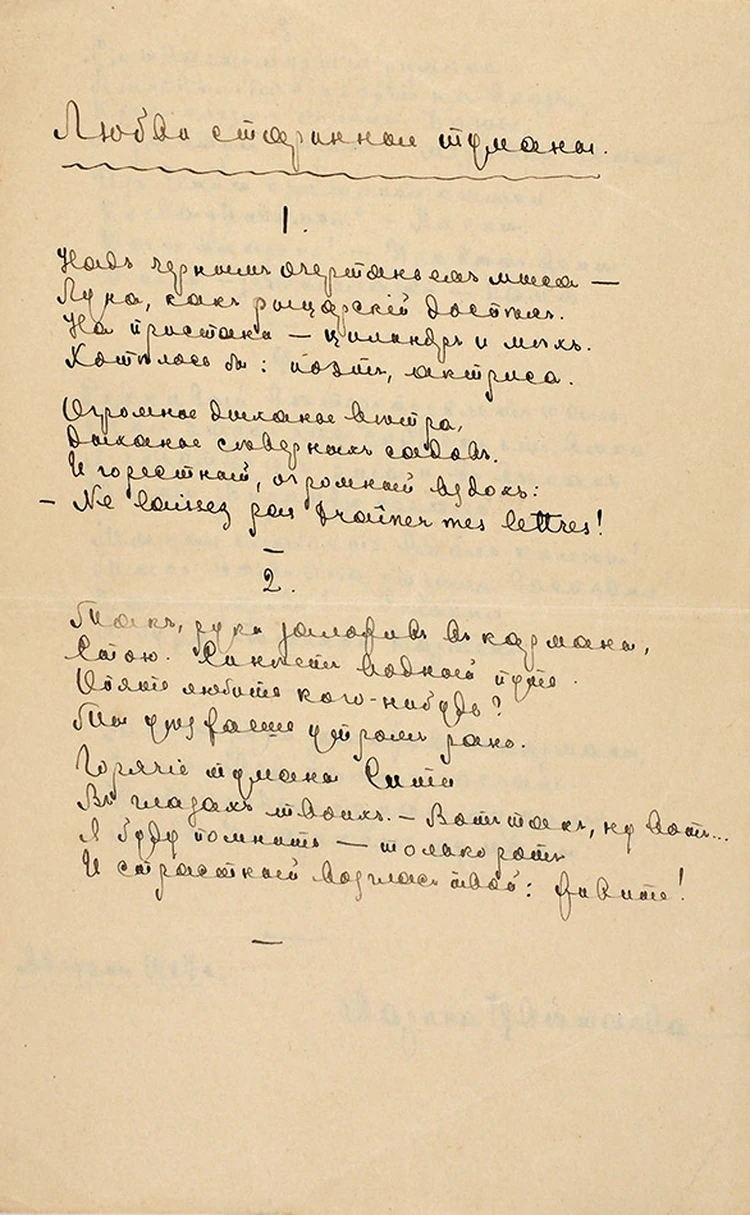 Любви старинные туманы.
1.
Надъ чернымъ очертаньемъ мыса —
Луна, какъ рыцарскій доспѣхъ.
На пристани — цилиндръ и мѣхъ.
Хотѣлось бы: поэтъ, актриса.
Огромное дыханье вѣтра,
Дыханье сѣверныхъ садовъ.
И горестный, огромный вздохъ:
— Ne laissez pas traîner mes lettres!
—
2.
Такъ, руки заложивъ въ карманы,
Стою. Синѣетъ водный путь.
Опять любить кого-нибудь?
Ты уѣзжаешь утромъ рано.
Горячіе туманы Сити
Въ глазахъ твоихъ. — Вотъ такъ, ну вотъ...
Я буду помнить — только ротъ
И страстный возгласъ твой: Живите!
—